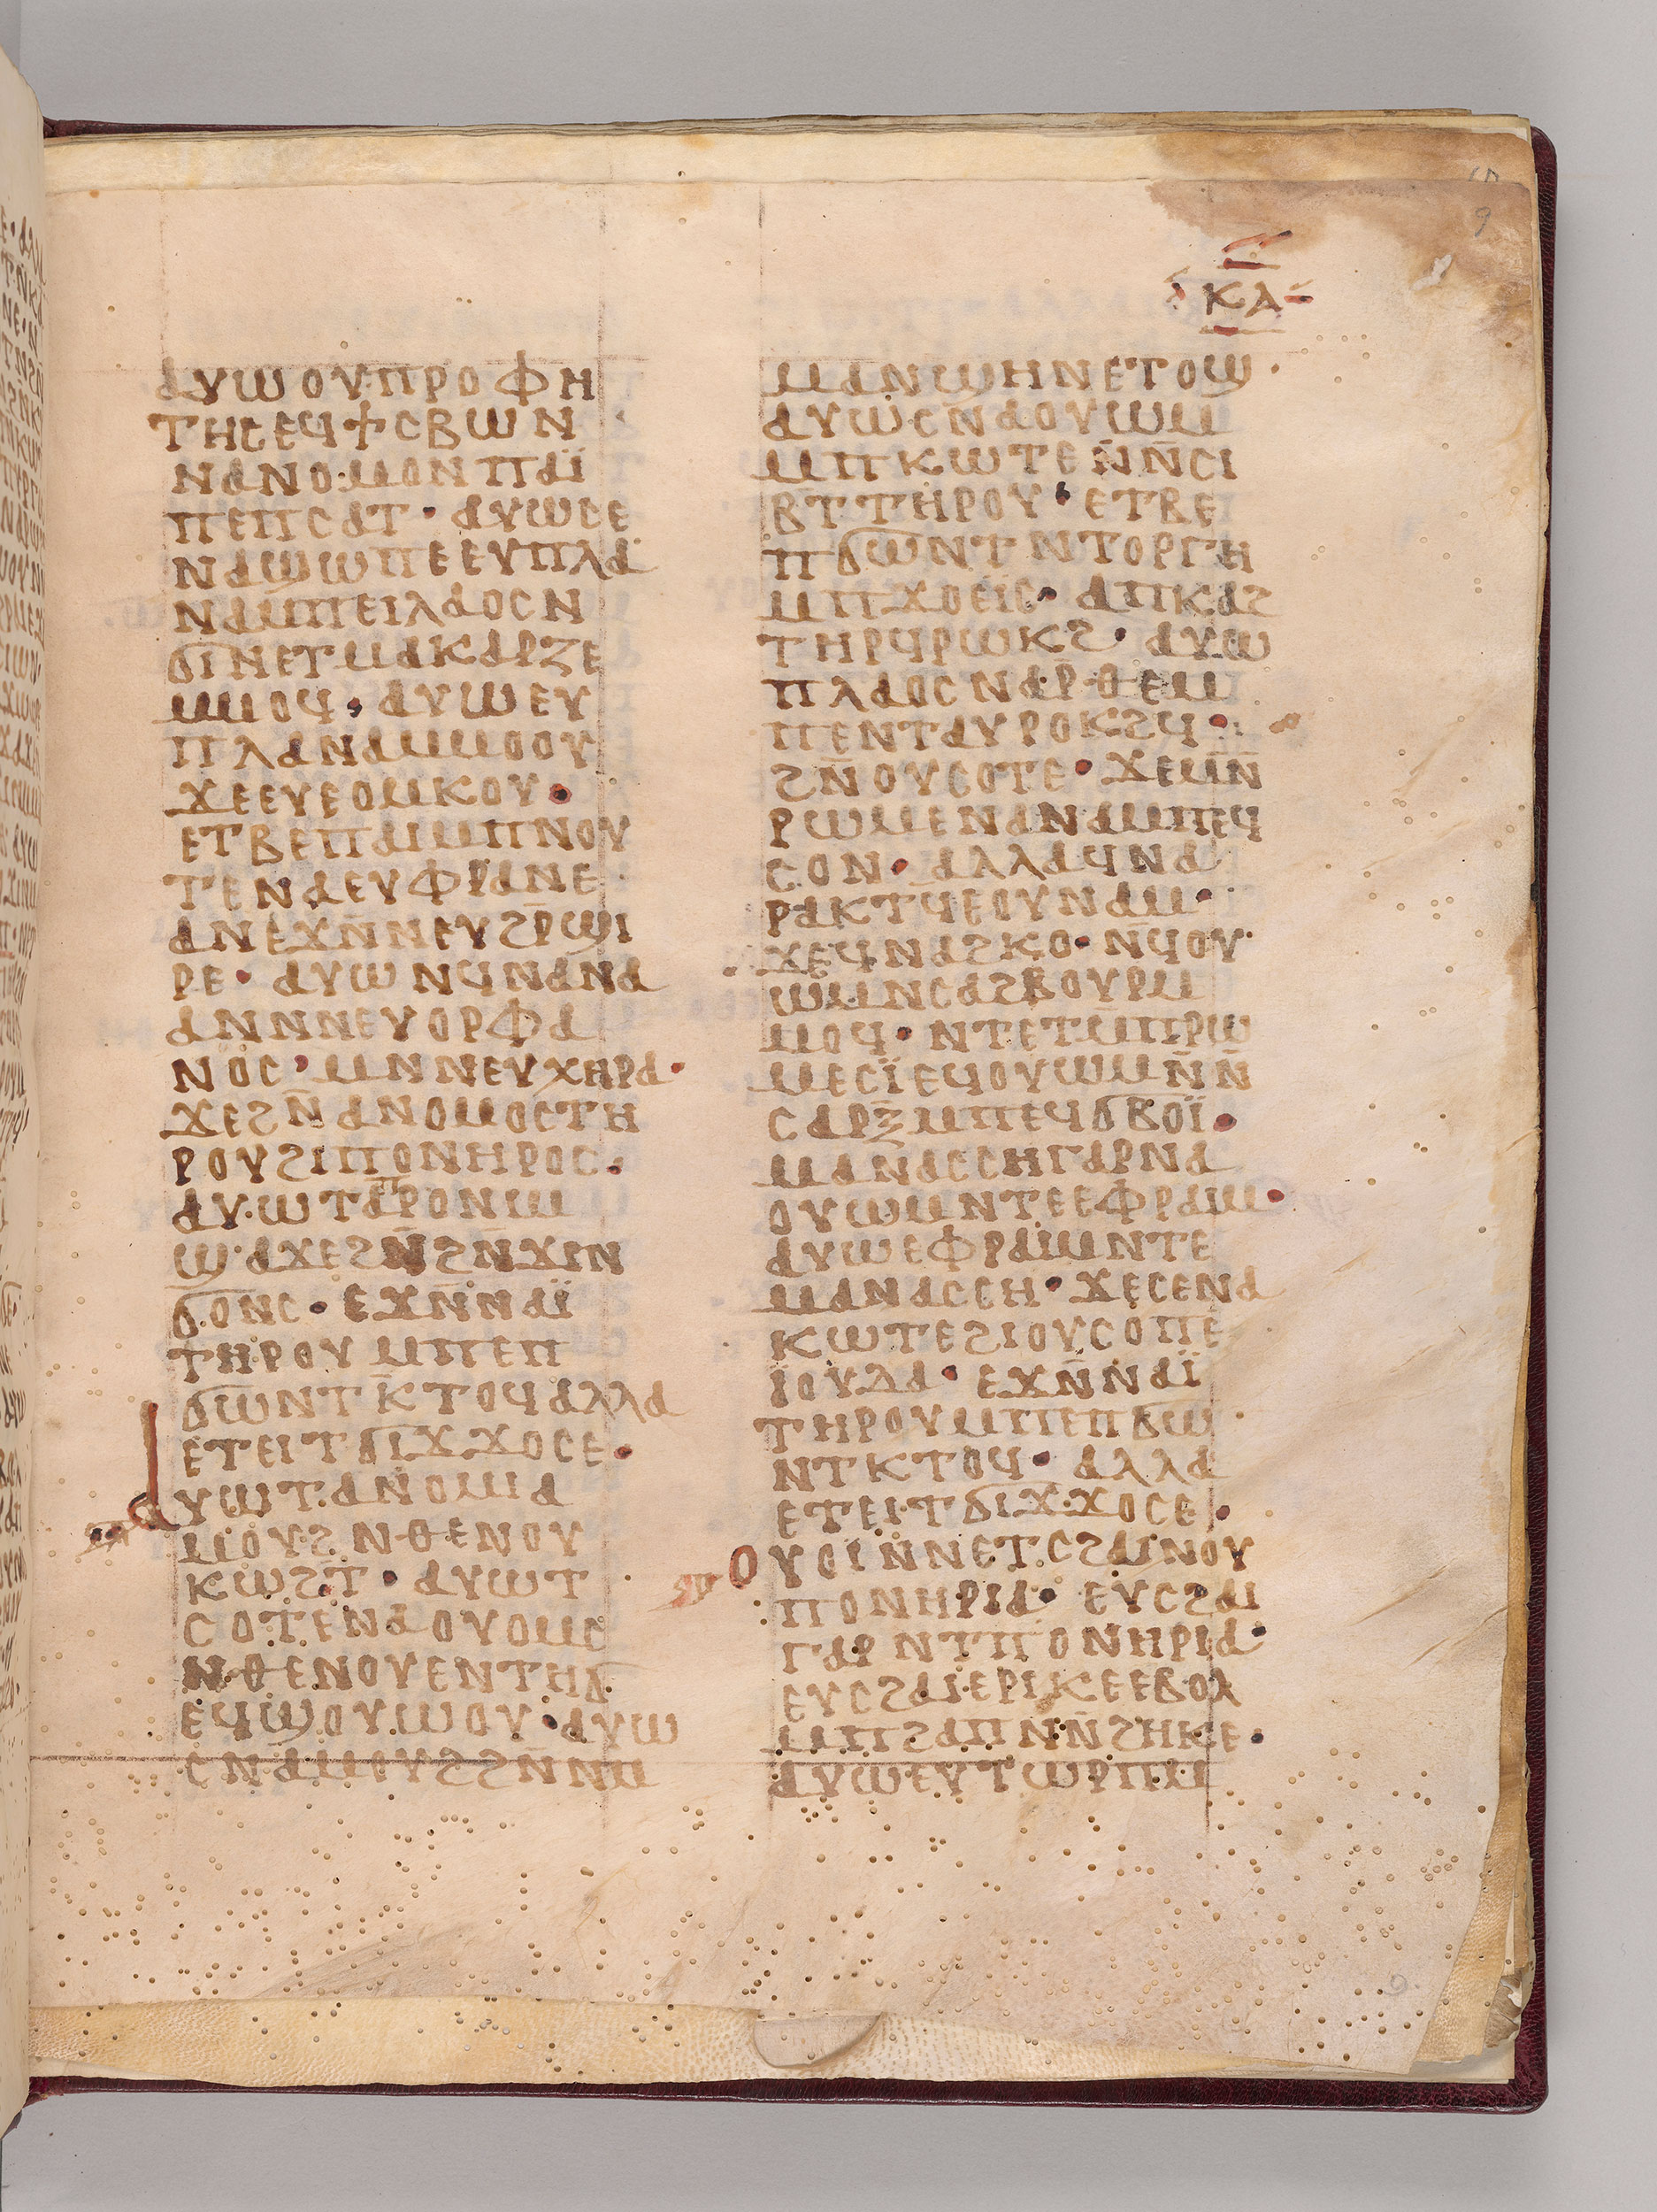 9
ⲕⲁ
ⲁⲩⲱⲟⲩⲡⲣⲟⲫⲏ
ⲧⲏⲥⲉϥϯⲥⲃⲱⲛ
ⲛⲁⲛⲟⲙⲟⲛⲡⲁⲓ̈
ⲡⲉⲡⲥⲁⲧ· ⲁⲩⲱⲥⲉ
ⲛⲁϣⲱⲡⲉⲉⲩⲡⲗⲁ
ⲛⲁⲙⲡⲉⲓⲗⲁⲟⲥⲛ
ϭⲓⲛⲉⲧⲙⲁⲕⲁⲣⲍⲉ
ⲙⲙⲟϥ· ⲁⲩⲱⲉⲩ
ⲡⲗⲁⲛⲁⲙⲙⲟⲟⲩ
ϫⲉⲉⲩⲉⲟⲙⲕⲟⲩ·
ⲉⲧⲃⲉⲡⲁⲓⲙⲡⲛⲟⲩ
ⲧⲉⲛⲁⲉⲩⲫⲣⲁⲛⲉ
ⲁⲛⲉϫⲛ̄ⲛⲉⲩϩⲣ̄ϣⲓ
ⲣⲉ· ⲁⲩⲱⲛϥⲛⲁⲛⲁ
ⲁⲛⲛⲛⲉⲩⲟⲣⲫⲁ
ⲛⲟⲥ· ⲙⲛⲛⲉⲩⲭⲏⲣⲁ·
ϫⲉϩⲛ̄ⲁⲛⲟⲙⲟⲥⲧⲏ
ⲣⲟⲩϩⲓⲡⲟⲛⲏⲣⲟⲥ·
ⲁⲩⲱⲧⲁⲡⲣⲟⲛⲓⲙ
ϣⲁϫⲉϩⲛ̄ϩⲛϫⲓⲛ
ϭⲟⲛⲥ· ⲉϫⲛ̄ⲛⲁⲓ̈
ⲧⲏⲣⲟⲩⲙⲡⲉⲡ
ϭⲱⲛⲧⲕ̄ⲧⲟϥⲁⲗⲗⲁ
ⲉⲧⲉⲓⲧϭⲓϫϫⲟⲥⲉ·
ⲁⲩⲱⲧⲁⲛⲟⲙⲓⲁ
ⲙⲟⲩϩⲛⲑⲉⲛⲟⲩ
ⲕⲱϩⲧ̄· ⲁⲩⲱⲧ
ⲥⲟⲧⲉⲛⲁⲟⲩⲟⲙⲥ
ⲛⲑⲉⲛⲟⲩⲉⲛⲧⲏϭ
ⲉϥϣⲟⲩⲱⲟⲩ·ⲁⲩⲱ
ⲥⲛⲁⲙⲟⲩϩϩⲛ̄ⲛⲙ
ⲙⲁⲛϣⲏⲛⲉⲧⲟϣ·
ⲁⲩⲱⲥⲛⲁⲟⲩⲱⲙ
ⲙⲡⲕⲱⲧⲉⲛ̄ⲛ̄ⲥⲓ
ⲃⲧⲧⲏⲣⲟⲩ· ⲉⲧⲃⲉ
ⲡϭⲱⲛⲧⲛⲧⲟⲣⲅⲏ
ⲙⲡϫⲟⲉⲓⲥ· ⲁⲡⲕⲁϩ
ⲧⲏⲣϥⲣⲱⲕϩ· ⲁⲩⲱ
ⲡⲗⲁⲟⲥⲛⲁⲣⲑⲉⲙ
ⲡⲉⲛⲧⲁⲩⲣⲟⲕϩϥ·
ϩⲛ̄ⲟⲩⲥⲟⲧⲉ· ϫⲉⲙⲛ̄
ⲣⲱⲙⲉⲛⲁⲛⲁⲙⲡⲉϥ
ⲥⲟⲛ· ⲁⲗⲗⲁϥⲛⲁ
ⲣⲁⲕⲧϥⲉⲟⲩⲛⲁⲙ·
ϫⲉϥⲛⲁϩⲕⲟ· ⲛ̄ϥⲟⲩ
ⲱⲙⲛⲥⲁϩⲃⲟⲩⲣⲙ
ⲙⲟϥ· ⲛⲧⲉⲧⲙ̄ⲡⲣⲱ
ⲙⲉⲥⲓ̈ⲉϥⲟⲩⲱⲙⲛ̄ⲛ̄
ⲥⲁⲣⲝⲙⲡⲉϥϭⲃⲟⲓ̈·
ⲙⲁⲛⲁⲥⲥⲏⲅⲁⲣⲛⲁ
ⲟⲩⲱⲙⲛⲧⲉⲉⲫⲣⲁⲓⲙ·
ⲁⲩⲱⲉⲫⲣⲁⲓⲙⲛⲧⲉ
ⲙⲁⲛⲁⲥⲥⲏ· ϫⲉⲥⲉⲛⲁ
ⲕⲱⲧⲉϩⲓⲟⲩⲥⲟⲡⲉ
ⲓ̈ⲟⲩⲇⲁ· ⲉϫⲛ̄ⲛⲁⲓ̈
ⲧⲏⲣⲟⲩⲙⲡⲉⲡϭⲱ
ⲛⲧⲕⲧⲟϥ· ⲁⲗⲗⲁ
ⲉⲧⲉⲓⲧϭⲓϫϫⲟⲥⲉ·
ⲟⲩⲟⲓⲛⲛⲉⲧⲥϩⲁⲓⲛⲟⲩ
ⲡⲟⲛⲏⲣⲓⲁ· ⲉⲩⲥϩⲁⲓ
ⲅⲁⲣⲛⲧⲡⲟⲛⲏⲣⲓⲁ·
ⲉⲩⲥϩⲁⲓⲉⲣⲓⲕⲉⲉⲃⲟⲗ
ⲙⲡϩⲁⲡⲛ̄ⲛ̄ϩⲏⲕⲉ·
ⲁⲩⲱⲉⲩⲧⲱⲣⲡⲙ